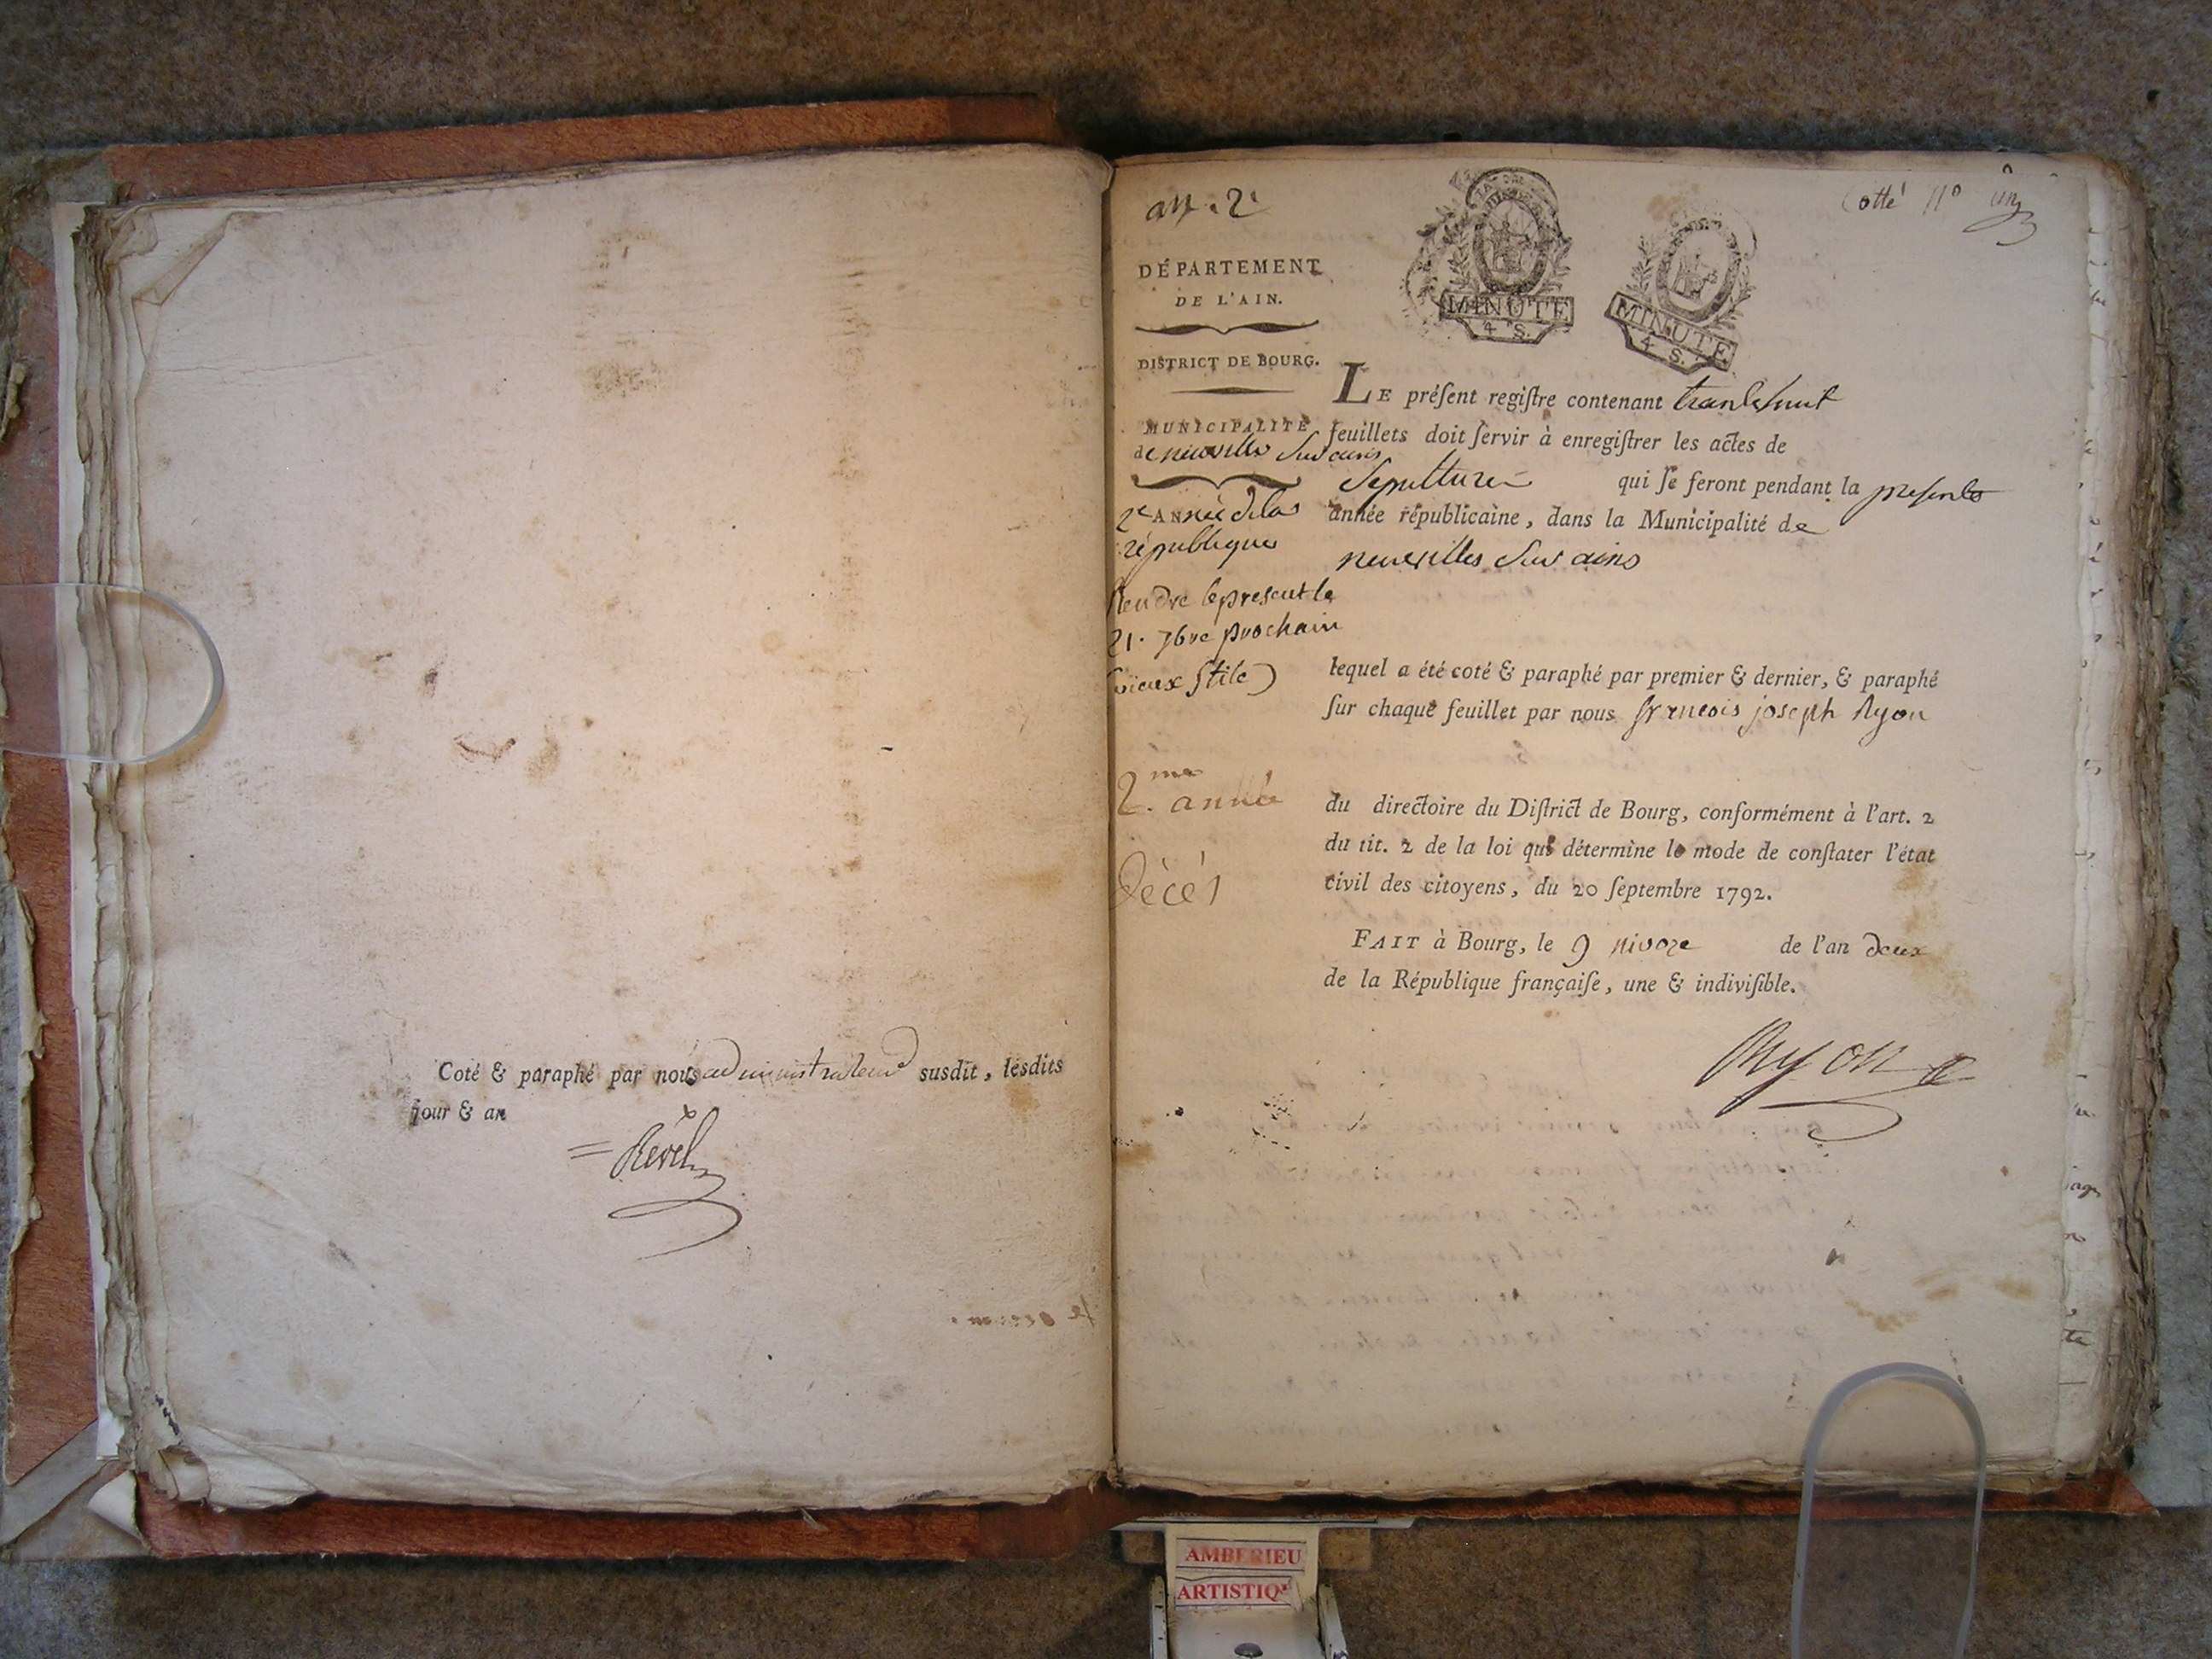 Coté & paraphé par nous administrateur susdit, lesdits
jour & an
Revel
an . 2e
Cotté No un
DÉPARTEMENT
DE L'AIN.
MINUTE
4 S.
MINUTE
4 S.
DISTRICT DE BOURG.
MUNICIPALITÉ
de neuville sur ains
2e ANnée de la
république
Rendre le present le
21. 7bre prochain
(vieux stile)
2.me année
Décés
LE préſent regiſtre contenant trante huit
feuillets doit ſervir à enregiſtrer les actes de
Sepulture qui ſe feront pendant la presente
année républicaine, dans la Municipalité de
neuvilles sur ains
lequel a été coté & paraphé par premier & dernier, & paraphé
ſur chaque feuillet par nous francois joseph Ryon
du directoire du Diſtrict de Bourg, conformément à l'art. 2
du tit. 2 de la loi qui détermine le mode de conſtater l'état
civil des citoyens, du 20 ſeptembre 1792.
FAIT à Bourg, le 9 nivoze de l'an deux
de la République françaiſe, une & indiviſible.
Ryon
AMBERIEU
ARTISTIQ